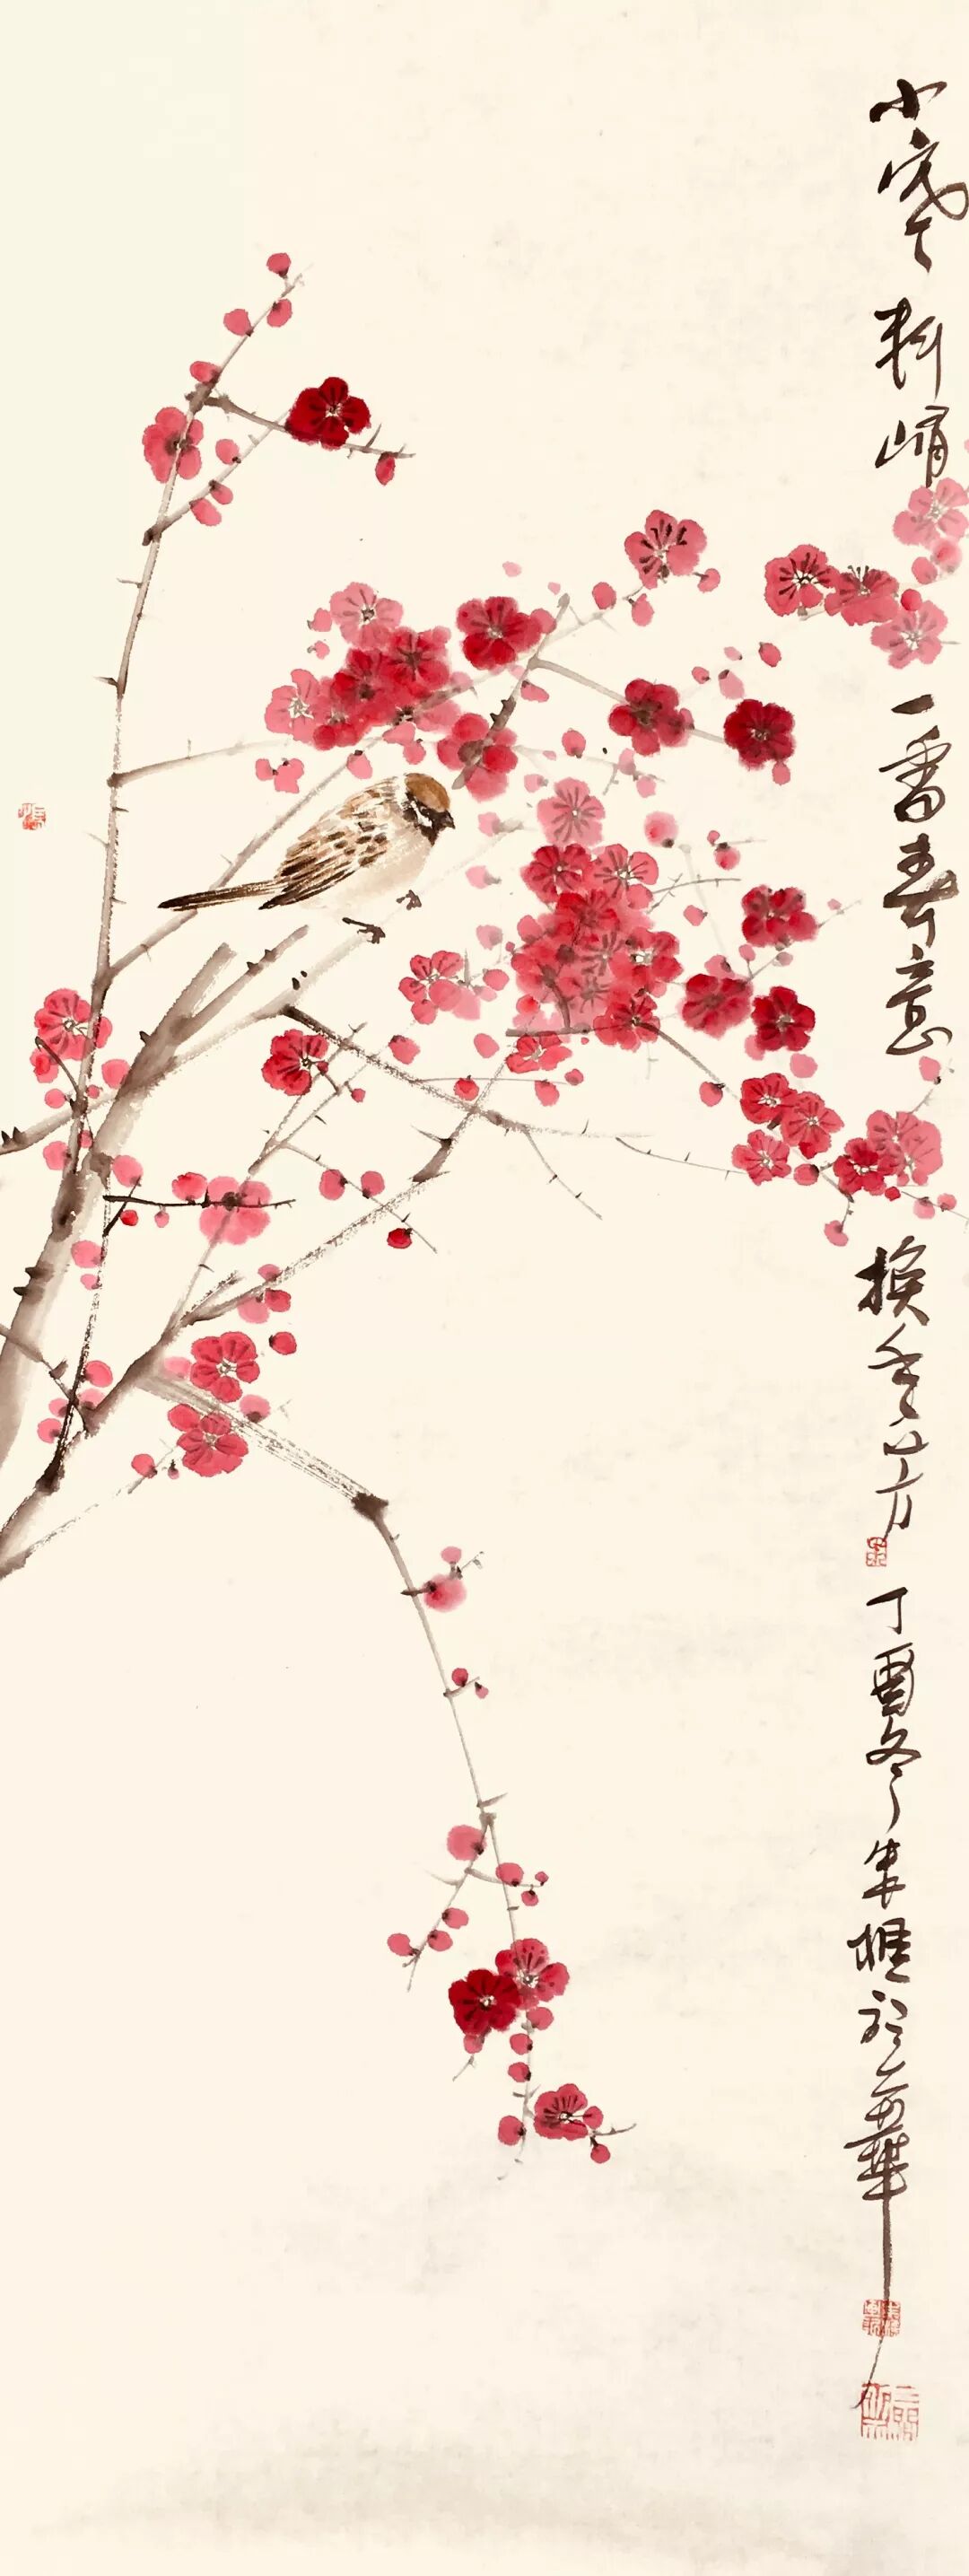 小寒料峭一番春意換年芳丁酉冬朱樵於華